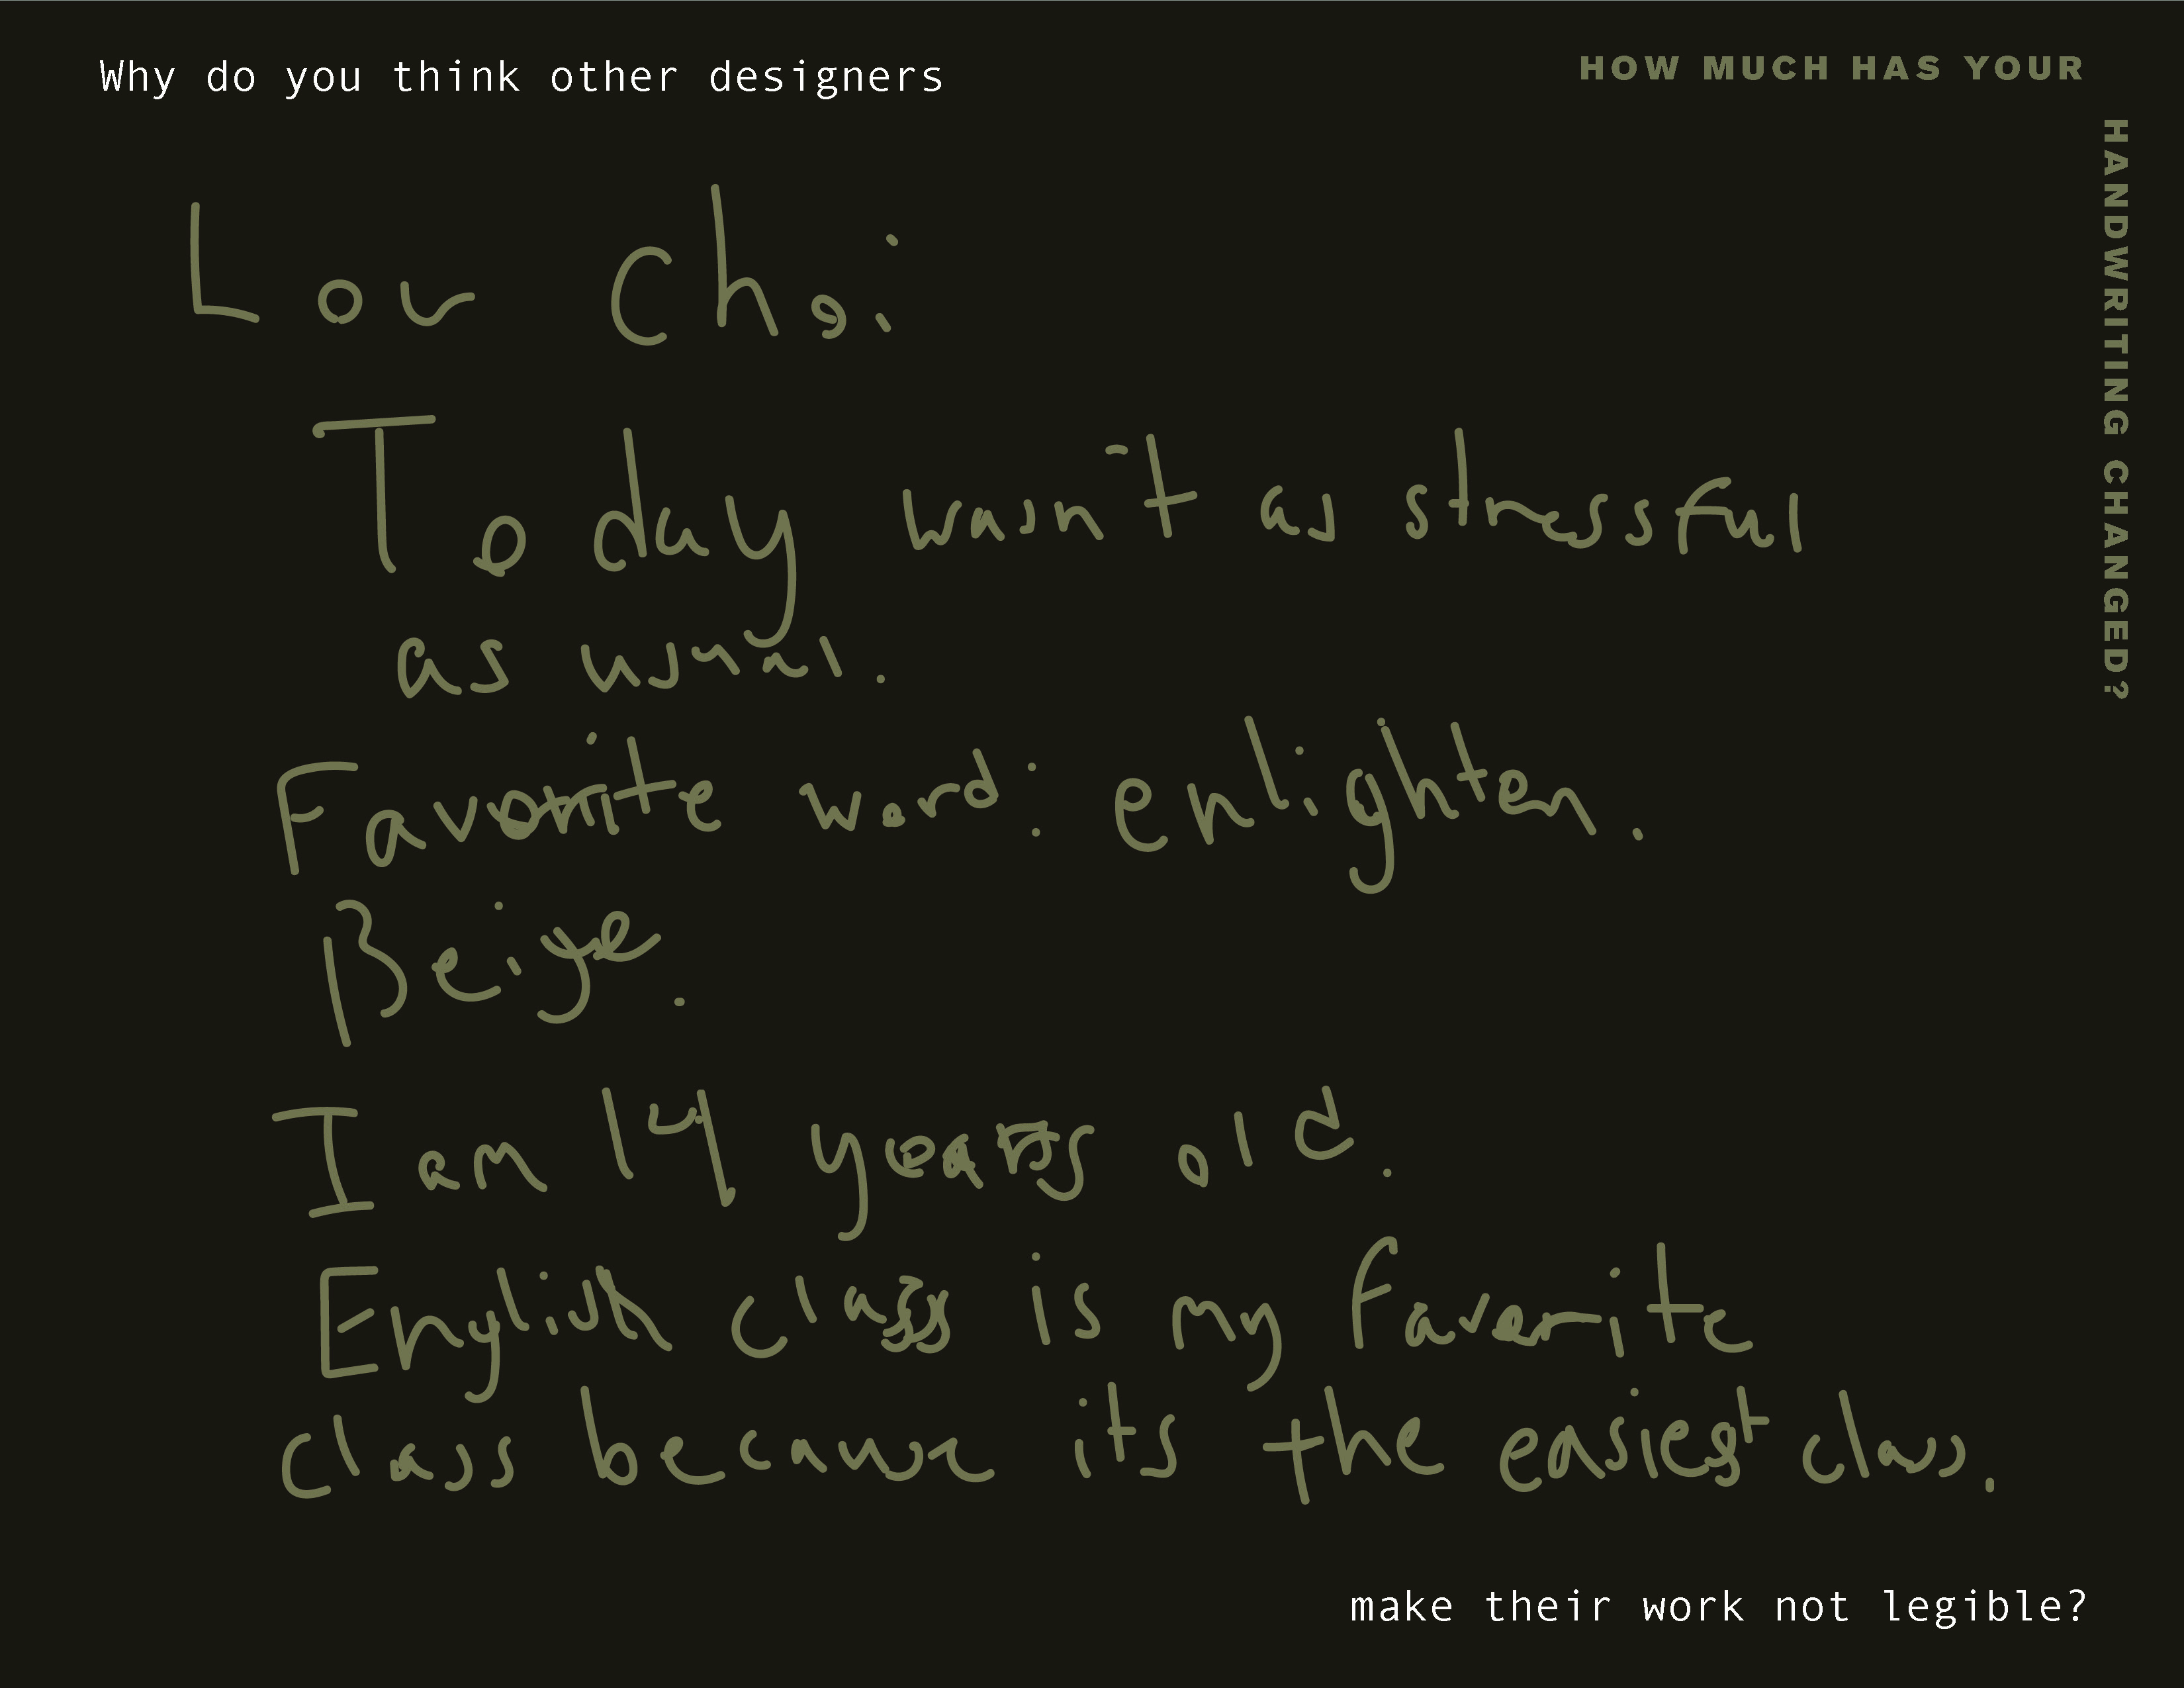 Why do you think other designers
HOW MUCH HAS YOUR
HANDWRITING CHANGED?
Lou Choi
Today wasn't as stressful
as usual.
Favorite word: enlighten.
Beige.
I am 14 years old.
English class is my favorite
class because its the easiest class.
make their work not legible?